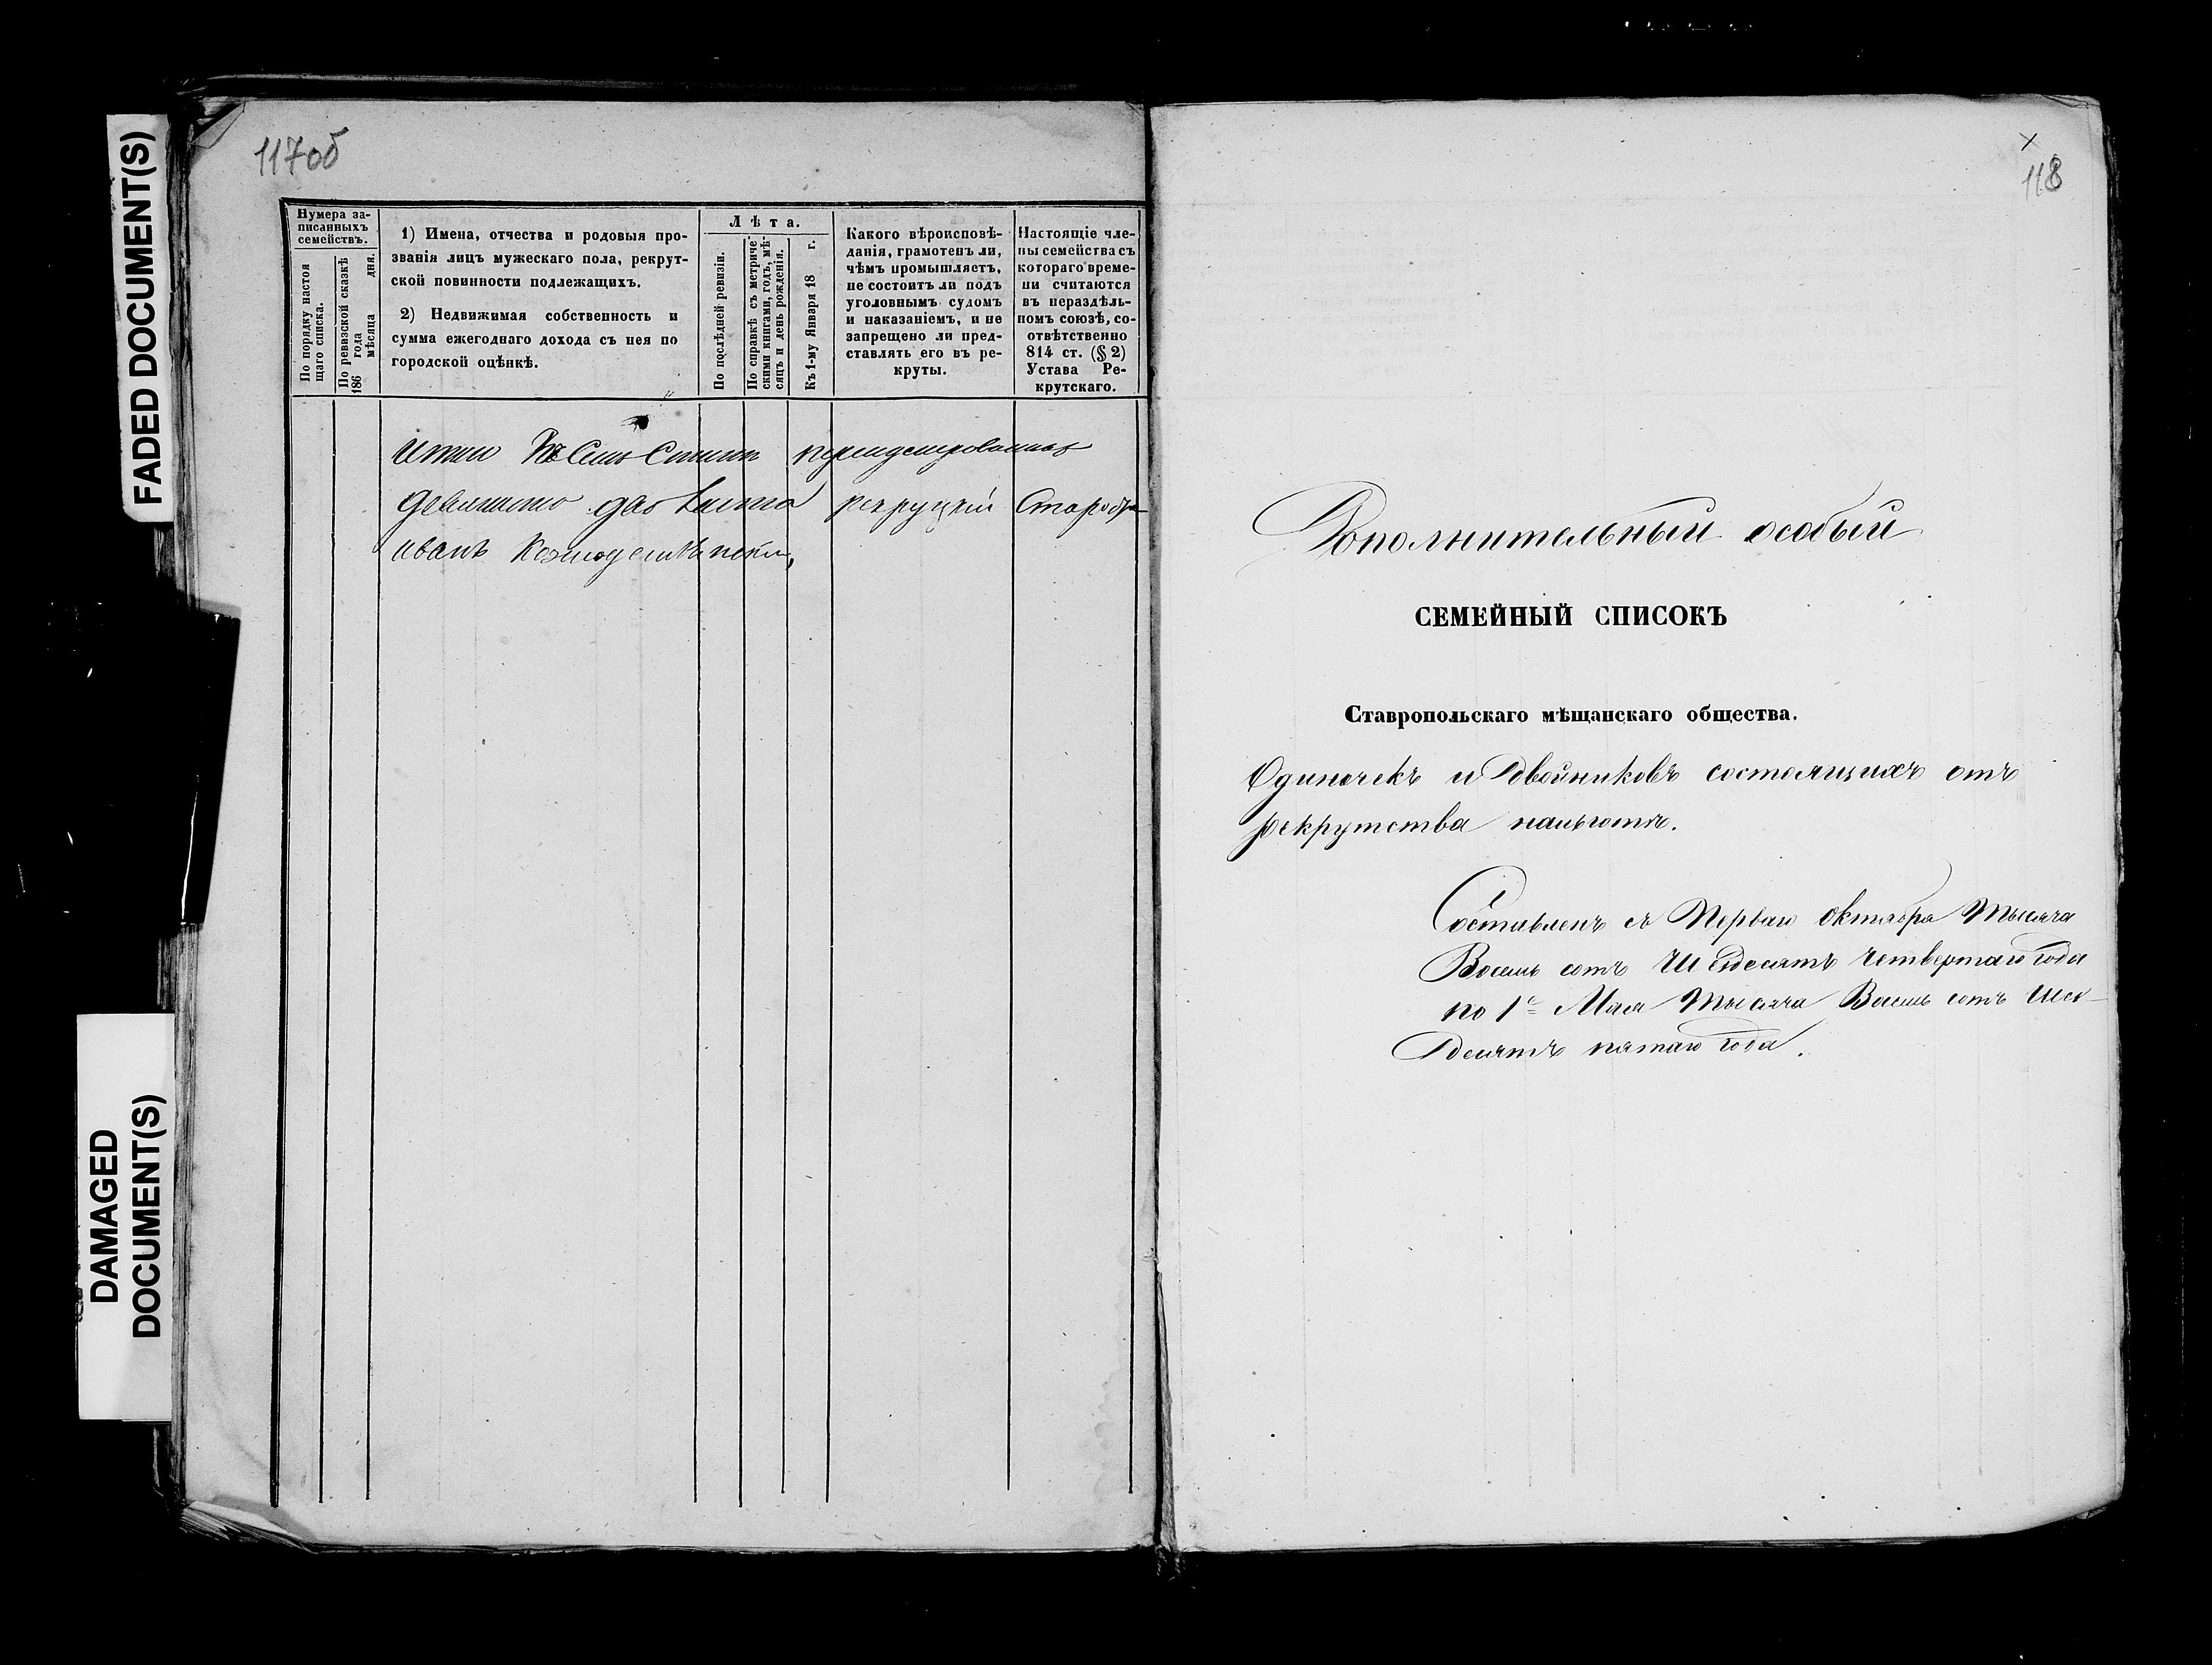 FADED DOCUMENT(S)
DAMAGED
DOCUMENT(S)
117об
Нумера за-
писанныхъ
семействъ.
По порядку настоя
щаго списка.
По ревизской сказкѣ
186 года мѣсяца дня.
1) Имена, отчества и родовыя про-
званія лицъ мужескаго пола, рекрут-
ской повинности подлежащихъ.
2) Недвижимая собственность и
сумма ежегоднаго дохода съ нея по
городской оцѣнкѣ.
Лѣта.
По послѣдней ревизіи.
По справкѣ съ метриче-
скими книгами, годъ, мѣ-
сяцъ и день рожденія.
Къ 1-му Января 18 г.
Какого вѣроисповѣ-
данія, грамотенъ ли,
чѣмъ промышляетъ,
не состоитъ ли подъ
уголовнымъ судомъ
и наказаніемъ, и не
запрещено ли пред-
ставлять его въ ре-
круты.
Настоящіе чле-
ны семейства съ
котораго време-
ни считаются
въ нераздѣль-
номъ союзѣ, со-
отвѣтственно
814 ст. (§ 2)
Устава Ре-
крутскаго.
Итого Въ Семъ Спискѣ
девяносто два листа рекруцкій Староста
иванъ
x
118
Дополнительный особый
СЕМЕЙНЫЙ СПИСОКЪ
Ставропольскаго мѣщанскаго общества.
Одиночекъ и Двойниковъ состоящихъ отъ
рекрутства нальготѣ.
Составленъ съ Перваго Октября Тысяча
Восемь сотъ Шесдесятъ четвертаго года
по 1е Мая Тысяча Восемь сотъ Шес-
десятъ пятаго года.